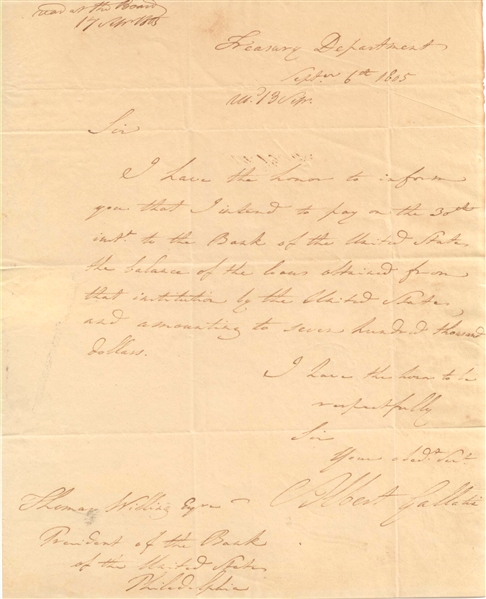 read at the Board
17 Sepr 1805
Treasury Department
Septer 6th 1805
recd 13 Sepr.
Sir
I have the honor to inform
you that I intend to pay on the 30th
inst. to the Bank of the United States
the balance of the loans obtained from
that institution by the United States,
and amounting to seven hundred thousand
dollars.
I have the honor to be
respectfully
Sir
Your obedt. Servt.
Albert Gallatin
Thomas Willing Esqre
President of the Bank
of the United States
Philadelphia